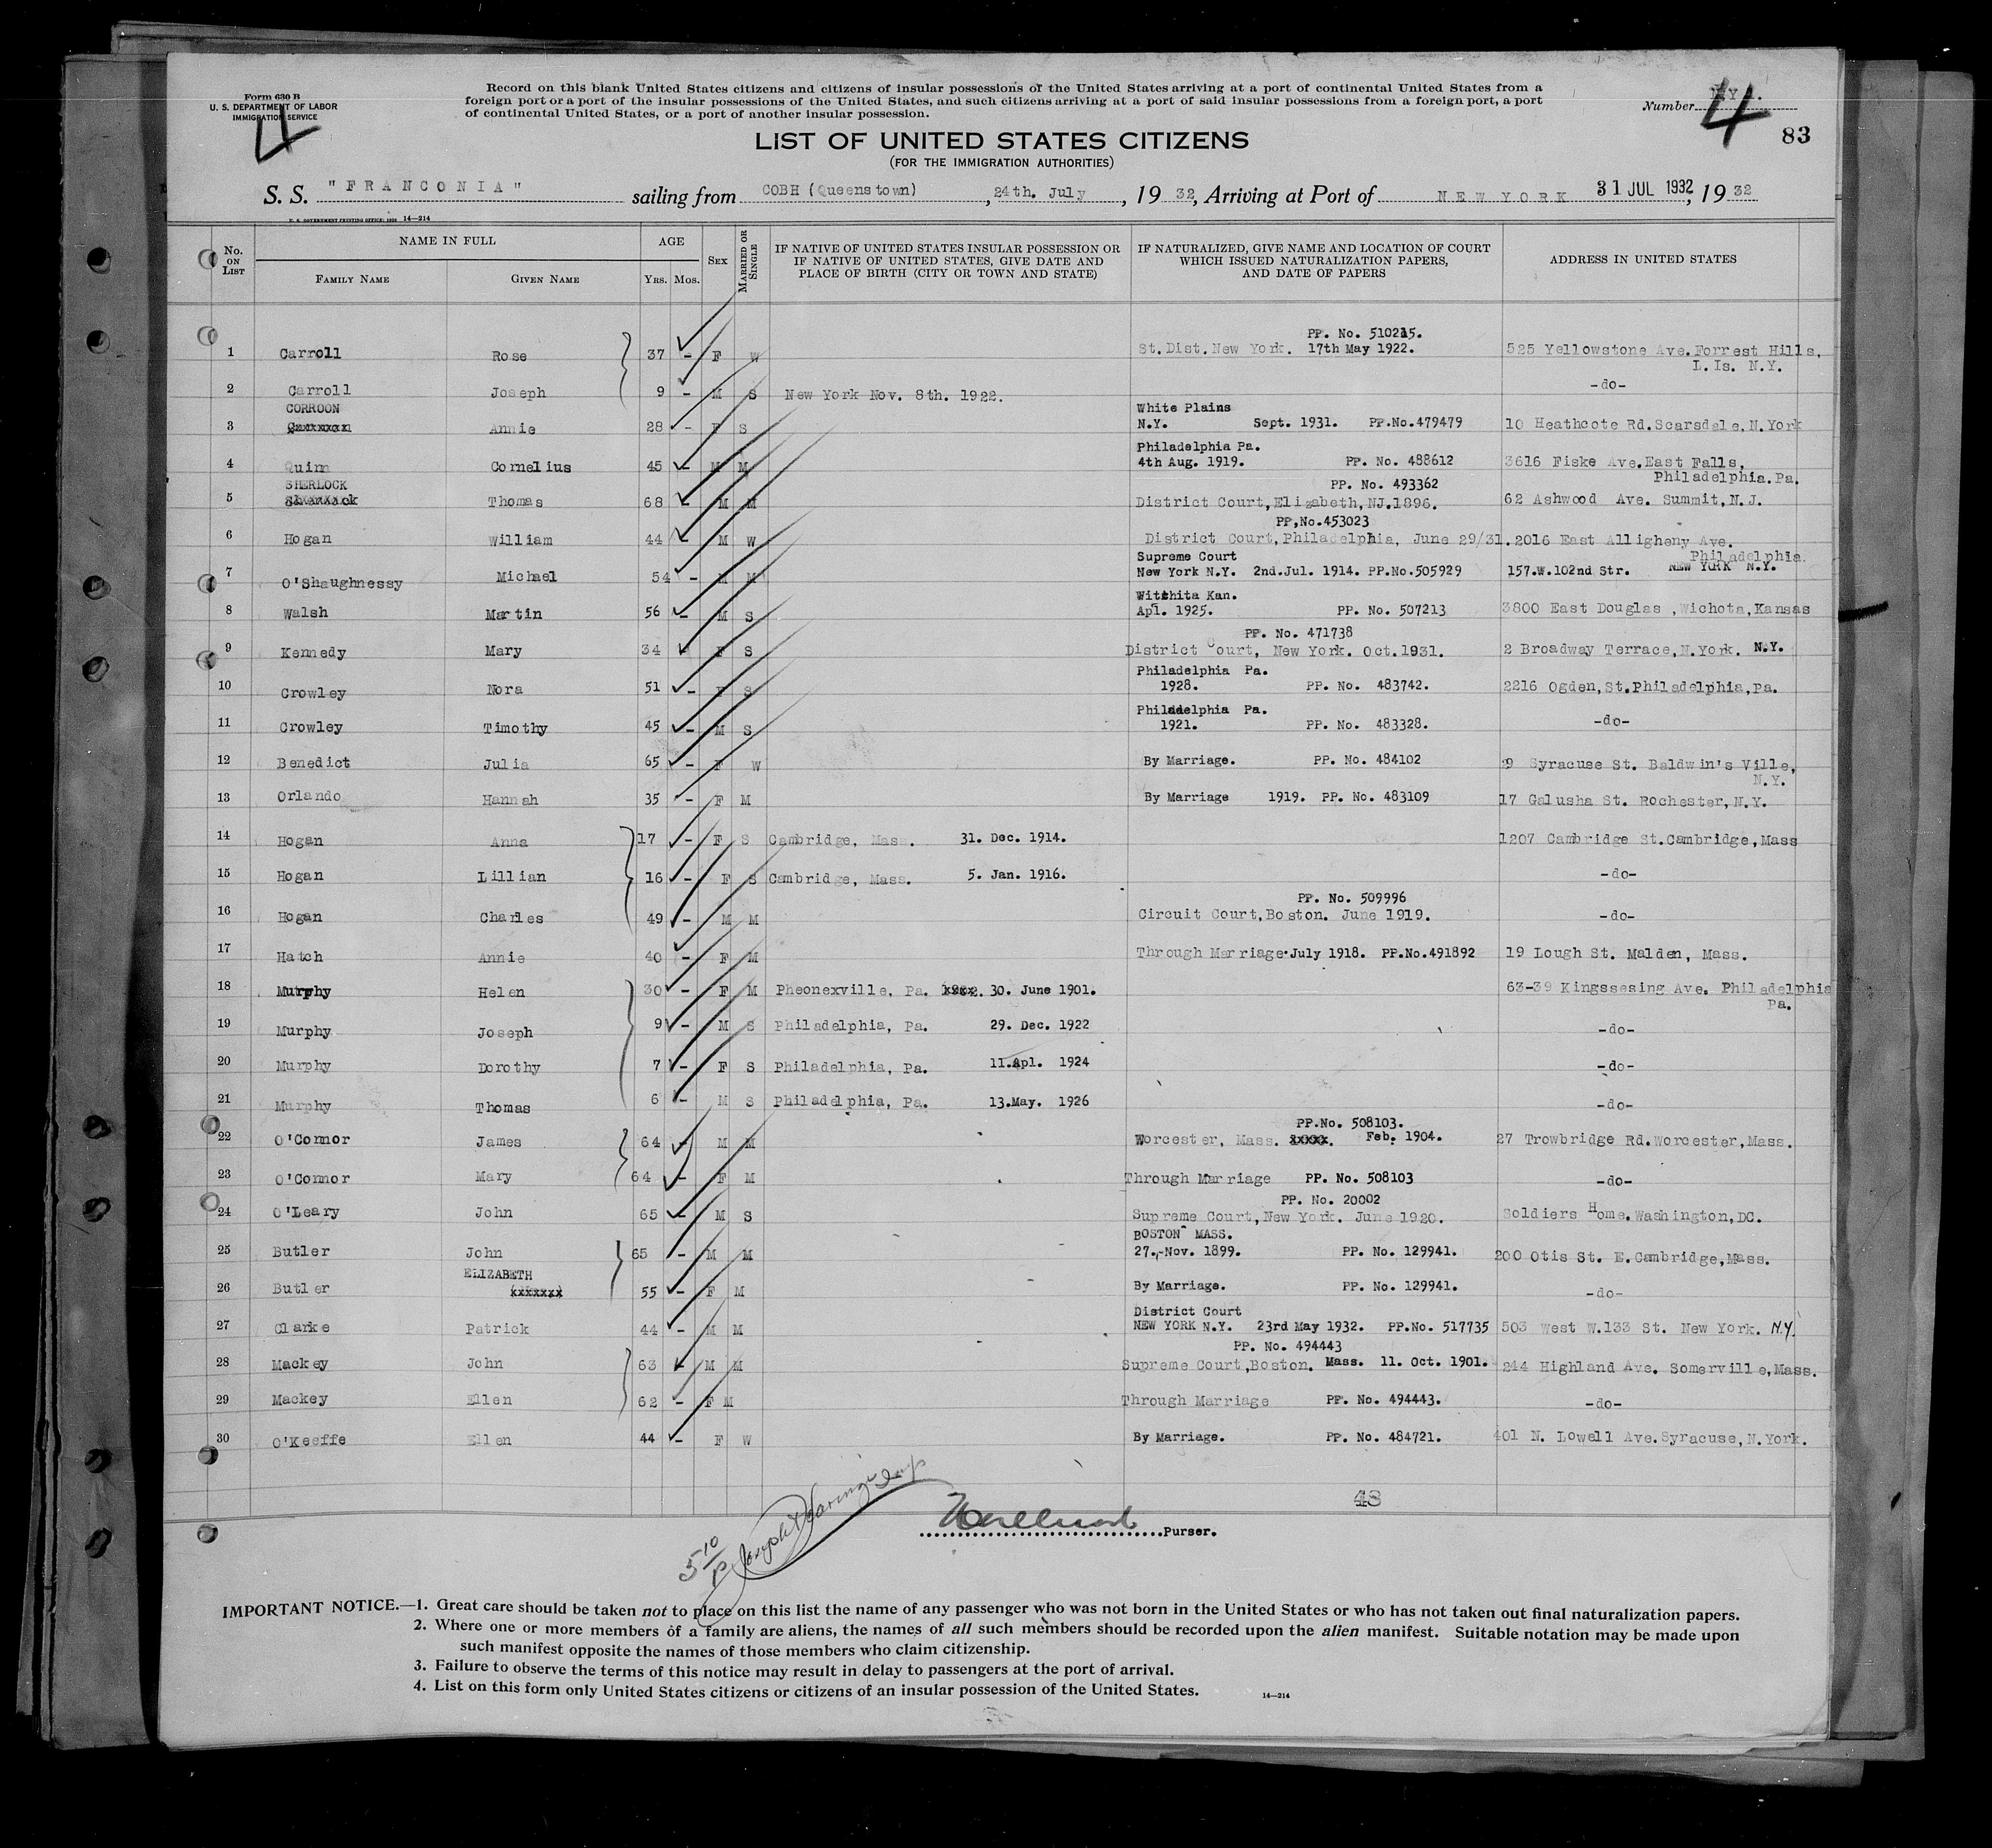 Form 630 B
U. S. DEPARTMENT OF LABOR
IMMIGRATION SERVICE
4
Record on this blank United States citizens and citizens of insular possessions of the United States arriving at a port of continental United States from a
foreign port or a port of the insular possessions of the United States, and such citizens arriving at a port of said insular possessions from a foreign port, a port
of continental United States, or a port of another insular possession.
Number 4
83
LIST OF UNITED STATES CITIZENS
(FOR THE IMMIGRATION AUTHORITIES)
S. S. "FRANCONIA" sailing from COBH (Queenstown), 24th. July, 1932, Arriving at Port of NEW YORK 31 JUL 1932, 1932
U. S. GOVERNMENT PRINTING OFFICE: 1928 14—214
No. ON LIST
NAME IN FULL
FAMILY NAME GIVEN NAME
AGE
YRS. MOS.
SEX
MARRIED OR SINGLE
IF NATIVE OF UNITED STATES INSULAR POSSESSION OR
IF NATIVE OF UNITED STATES, GIVE DATE AND
PLACE OF BIRTH (CITY OR TOWN AND STATE)
IF NATURALIZED, GIVE NAME AND LOCATION OF COURT
WHICH ISSUED NATURALIZATION PAPERS,
AND DATE OF PAPERS
ADDRESS IN UNITED STATES
PP. No.
1 Carroll Rose 37 - F W St. Dist. New York. 17th May 1922. 525 Yellowstone Ave. Forrest Hills,
L. Is. N.Y.
2 Carroll Joseph 9 - M S New York Nov. 8th. 1922. -do-
CORROON White Plains
3 Annie 28 - F S N.Y. Sept. 1931. PP.No.479479 10 Heathcote Rd. Scarsdale, N.York
Philadelphia Pa.
4 Quinn Cornelius 45 - M M 4th Aug. 1919. PP. No. 488612 3616 Fiske Ave. East Falls,
Philadelphia. Pa.
SHERLOCK PP. No. 493362
5 Thomas 68 - M M District Court, Elizabeth, NJ. 1896. 62 Ashwood Ave. Summit, N.J.
PP,No.453023
6 Hogan William 44 - M W District Court, Philadelphia, June 29/31. 2016 East Alligheny Ave.
Philadelphia.
Supreme Court
7 O'Shaughnessy Michael 54 - M M New York N.Y. 2nd.Jul. 1914. PP.No.505929 157.W.102nd Str. NEW YORK N.Y.
Witchita Kan.
8 Walsh Martin 56 - M S Apl. 1925. PP. No. 507213 3800 East Douglas, Wichota, Kansas
PP. No. 471738
9 Kennedy Mary 34 F S District Court, New York. Oct. 1931. 2 Broadway Terrace, N.York. N.Y.
Philadelphia Pa.
10 Crowley Nora 51 - F S 1928. PP. No. 483742. 2216 Ogden, St. Philadelphia, Pa.
Philadelphia Pa.
11 Crowley Timothy 45 - M S 1921. PP. No. 483328. -do-
12 Benedict Julia 65 - F W By Marriage. PP. No. 484102 9 Syracuse St. Baldwin's Ville,
N.Y.
13 Orlando Hannah 35 - F M By Marriage 1919. PP. No. 483109 17 Galusha St. Rochester, N.Y.
14 Hogan Anna 17 - F S Cambridge, Mass. 31. Dec. 1914. 1207 Cambridge St. Cambridge, Mass
15 Hogan Lillian 16 - F S Cambridge, Mass. 5. Jan. 1916. -do-
PP. No. 509996
16 Hogan Charles 49 - M M Circuit Court, Boston. June 1919. -do-
17 Hatch Annie 40 - F M Through Marriage July 1918. PP.No.491892 19 Lough St. Malden, Mass.
18 Murphy Helen 30 - F M Pheonexville, Pa. 30. June 1901. 63-39 Kingssesing Ave. Philadelphia
Pa.
19 Murphy Joseph 9 - M S Philadelphia, Pa. 29. Dec. 1922 -do-
20 Murphy Dorothy 7 - F S Philadelphia, Pa. 11.Apl. 1924 -do-
21 Murphy Thomas 6 - M S Philadelphia, Pa. 13.May. 1926 -do-
PP.No. 508103.
22 O'Connor James 64 - M M Worcester, Mass. xxxxx. Feb. 1904. 27 Trowbridge Rd. Worcester, Mass.
23 O'Connor Mary 64 - F M Through Marriage PP. No. 508103 -do-
PP. No. 20002
24 O'Leary John 65 - M S Supreme Court, New York. June 1920. Soldiers Home. Washington, DC.
BOSTON MASS.
25 Butler John 65 - M M 27.-Nov. 1899. PP. No. 129941. 200 Otis St. E. Cambridge, Mass.
ELIZABETH
26 Butler xxxxxxx 55 - F M By Marriage. PP. No. 129941. -do-
District Court
27 Clarke Patrick 44 - M M NEW YORK N.Y. 23rd May 1932. PP.No. 517735 503 West W.133 St. New York. N.Y.
PP. No. 494443
28 Mackey John 63 - M M Supreme Court, Boston. Mass. 11. Oct. 1901. 244 Highland Ave. Somerville, Mass.
29 Mackey Ellen 62 - F M Through Marriage PP. No. 494443. -do-
30 O'Keeffe Ellen 44 - F W By Marriage. PP. No. 484721. 401 N. Lowell Ave. Syracuse, N.York.
48
Purser.
IMPORTANT NOTICE.—1. Great care should be taken not to place on this list the name of any passenger who was not born in the United States or who has not taken out final naturalization papers.
2. Where one or more members of a family are aliens, the names of all such members should be recorded upon the alien manifest. Suitable notation may be made upon
such manifest opposite the names of those members who claim citizenship.
3. Failure to observe the terms of this notice may result in delay to passengers at the port of arrival.
4. List on this form only United States citizens or citizens of an insular possession of the United States.
14—214